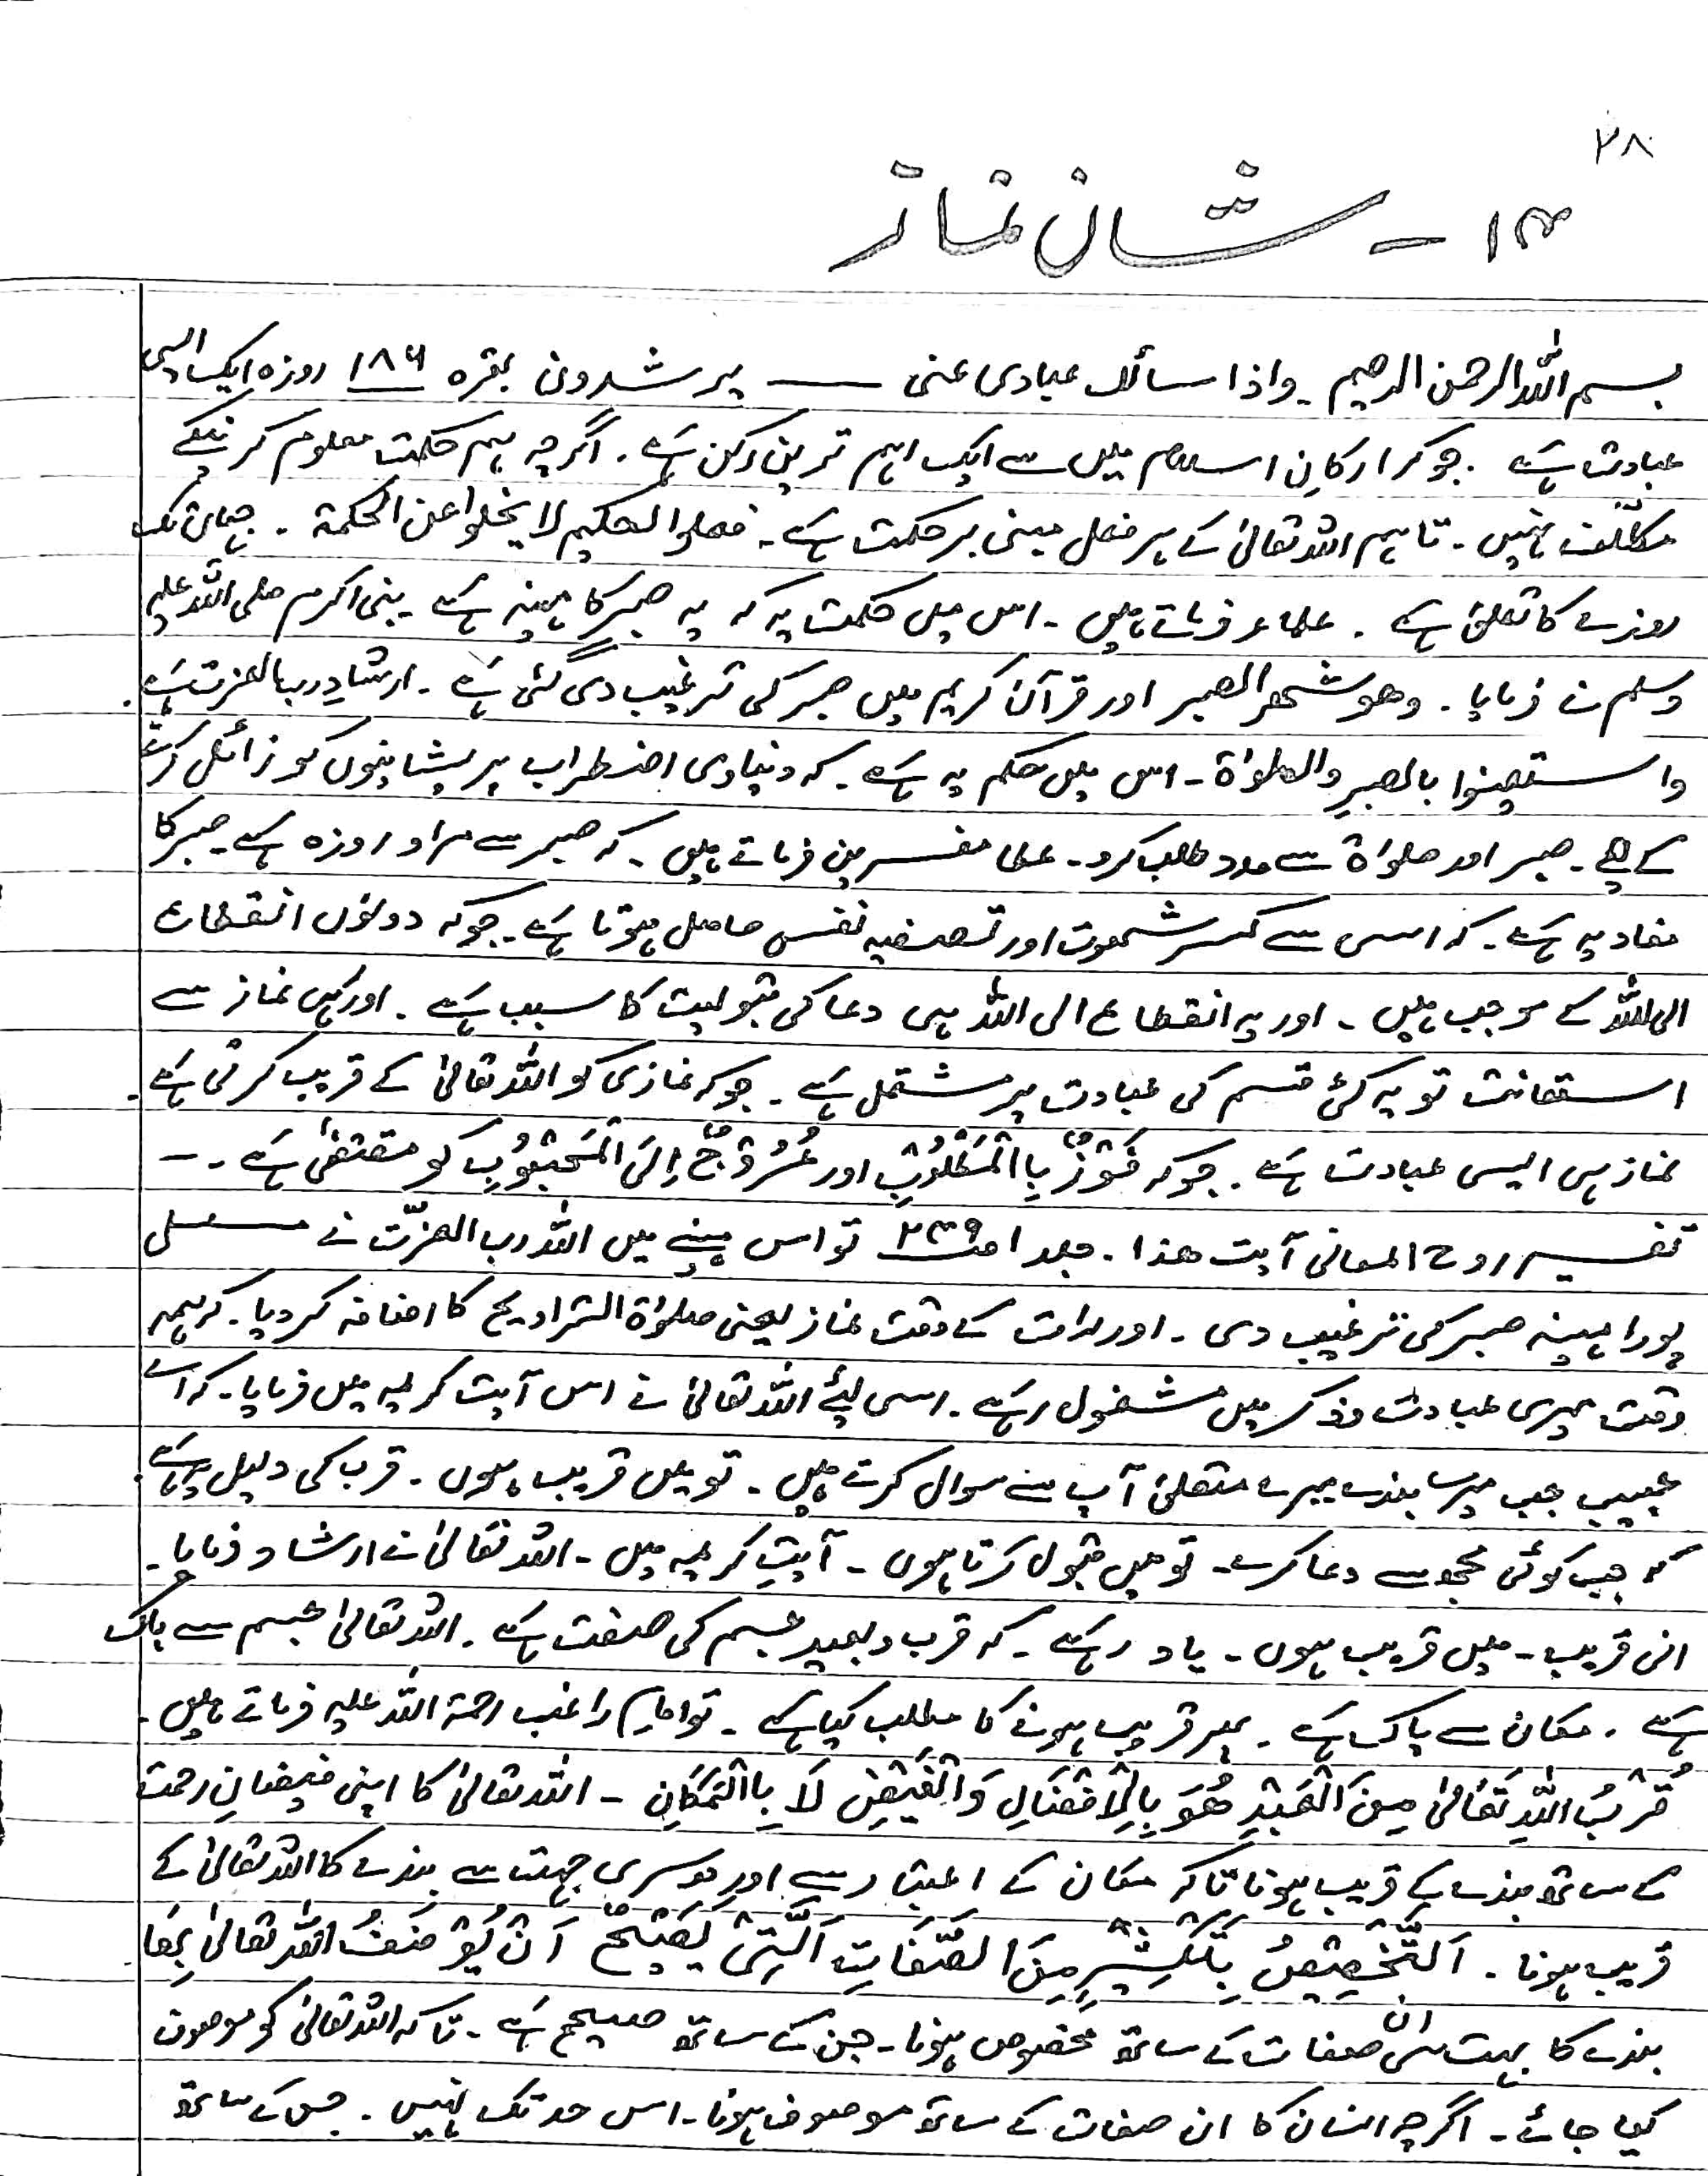 ۲۸
۱۳ - شان نماز
بسم اللہ الرحمن الرحیم۔ واذا سائلک عبادی عنی ــــ یرشدون بقرہ ۱۸۶ روزہ ایک ایسی
عبادت ہے۔ جو کہ ارکانِ اسلام میں سے ایک اہم ترین رکن ہے۔ اگرچہ ہم حکمت معلوم کرنیکے
مکلّف نہیں۔ تاہم اللہ تعالیٰ کے ہر فعل مبنی بر حکمت ہے۔ فعلوا لحکیم لا یخلوا عن الحکمة۔ جہاں تک
روزے کا تعلق ہے۔ علماء فرماتے ہیں۔ اس میں حکمت یہ کہ یہ صبر کا مہینہ ہے۔ نبی اکرم صلی اللہ علیہ
وسلم نے فرمایا۔ وھو شھر الصبر اور قرآن کریم میں صبر کی ترغیب دی گئی ہے۔ ارشادِ رب العزت ہے۔
واستعینوا بالصبرِ والصلوٰۃ۔ اس میں حکم یہ ہے۔ کہ دنیاوی اضطراب پریشانیوں کو زائل کرنے
کے لیے۔ صبر اور صلوٰۃ سے مدد طلب کرو۔ علما مفسرین فرماتے ہیں۔ کہ صبر سے مراد روزہ ہے۔ صبر کا
مفاد یہ ہے۔ کہ اسی سے کسر شھوت اور تصفیہ نفس حاصل ہوتا ہے۔ جو کہ دونوں انقطاع
الی اللہ کے موجب ہیں۔ اور یہ انقطاع الی اللہ ہی دعا کی قبولیت کا سبب ہے۔ اور رہی نماز سے
استعانت تو یہ کئی قسم کی عبادت پر مشتمل ہے۔ جو کہ نمازی کو اللہ تعالیٰ کے قریب کرتی ہے۔
نماز ہی ایسی عبادت ہے۔ جو کہ فَوْزٌ بِاالْمَطْلُوْبِ اور عُرُوْجٌ اِلَی الْمَحْبُوْبِ کو مقتضیٰ ہے۔ -
تفسیر روح المعانی آیت ھذا۔ جلد ۱ صـ ۲۳۹ تو اس مہینے میں اللہ رب العزّت نے
پورا مہینہ صبر کی ترغیب دی۔ اور رات کے وقت نماز یعنی صلوٰۃ التراویح کا اضافہ کر دیا۔ کہ ہمہ
وقت میری عبادت و ذکر میں مشغول رہے۔ اسی لیئے اللہ تعالیٰ نے اس آیت کریمہ میں فرمایا۔ کہ اے
حبیب جب میرے بندے میرے متعلق آپ سے سوال کرتے ہیں۔ تو میں قریب ہوں۔ قرب کی دلیل یہ ہے۔
کہ جب کوئی مجھ سے دعا کرے۔ تو میں قبول کرتا ہوں۔ آیتِ کریمہ میں۔ اللہ تعالیٰ نے ارشاد فرمایا۔
انی قریب۔ میں قریب ہوں۔ یاد رہے۔ کہ قرب و بعید جسم کی صفت ہے۔ اللہ تعالیٰ جسم سے پاک
ہے۔ مکان سے پاک ہے۔ پھر قریب ہونے کا مطلب کیا ہے۔ تو امام راغب رحمۃ اللہ علیہ فرماتے ہیں۔
قُرْبُ اللّٰہِ تَعَالیٰ مِنَ الْعَبْدِ ھُوَ بِالْاِفْضَالِ وَالْفَیْضِ لَا بِاالْمَکَانِ - اللہ تعالیٰ کا اپنی فیضانِ رحمت
کے ساتھ بندے کے قریب ہونا نا کہ مکان کے اعتبار سے اور دوسری جہت سے بندے کا اللہ تعالیٰ کے
قریب ہونا۔ اَلتَّخْصِیْصُ بِکَثِیْرٍ مِنَ الصِّفَاتِ الَّتِیْ یَصِحُّ اَنْ یُوْصَفُ اللّٰہُ تعالیٰ بِھَا
بندے کا بہت سی ان صفات کے ساتھ مخصوص ہونا۔ جن کے ساتھ صحیح ہے۔ تاکہ اللہ تعالیٰ کو موصوف
کیا جائے۔ اگرچہ انسان کا ان صفات کے ساتھ موصوف ہونا۔ اس حد تک نہیں۔ جس کے ساتھ